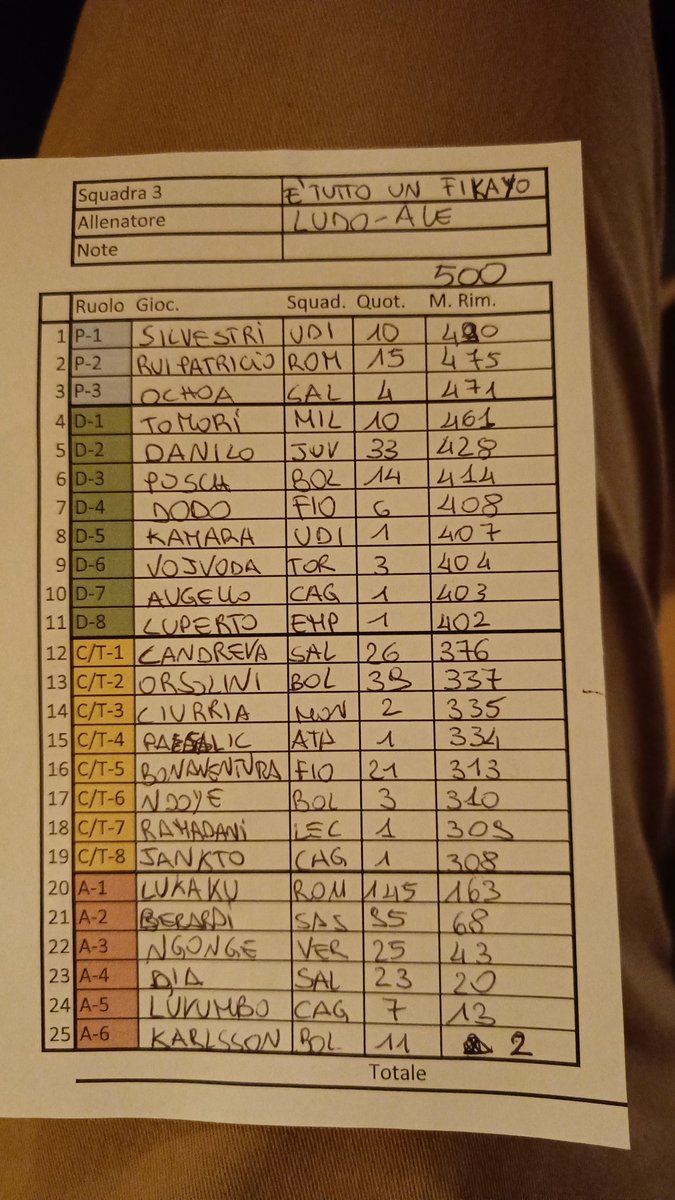 Squadra 3 E' TUTTO UN FIKAYO
Allenatore LUDO-ALE
Note
500
Ruolo Gioc. Squad. Quot. M. Rim.
1 P-1 SILVESTRI UDI 10 490
2 P-2 RUI PATRICIO ROM 15 475
3 P-3 OCHOA SAL 4 471
4 D-1 TOMORI MIL 10 461
5 D-2 DANILO JUV 33 428
6 D-3 POSCH BOL 14 414
7 D-4 DODO FIO 6 408
8 D-5 KAMARA UDI 1 407
9 D-6 VOJVODA TOR 3 404
10 D-7 AUGELLO CAG 1 403
11 D-8 LUPERTO EMP 1 402
12 C/T-1 CANDREVA SAL 26 376
13 C/T-2 ORSOLINI BOL 39 337
14 C/T-3 CIURRIA MON 2 335
15 C/T-4 PASALIC ATA 1 334
16 C/T-5 BONAVENTURA FIO 21 313
17 C/T-6 NDOYE BOL 3 310
18 C/T-7 RAMADANI LEC 1 309
19 C/T-8 JANKTO CAG 1 308
20 A-1 LUKAKU ROM 145 163
21 A-2 BERARDI SAS 95 68
22 A-3 NGONGE VER 25 43
23 A-4 DIA SAL 23 20
24 A-5 LUVUMBO CAG 7 13
25 A-6 KARLSSON BOL 11 2
Totale